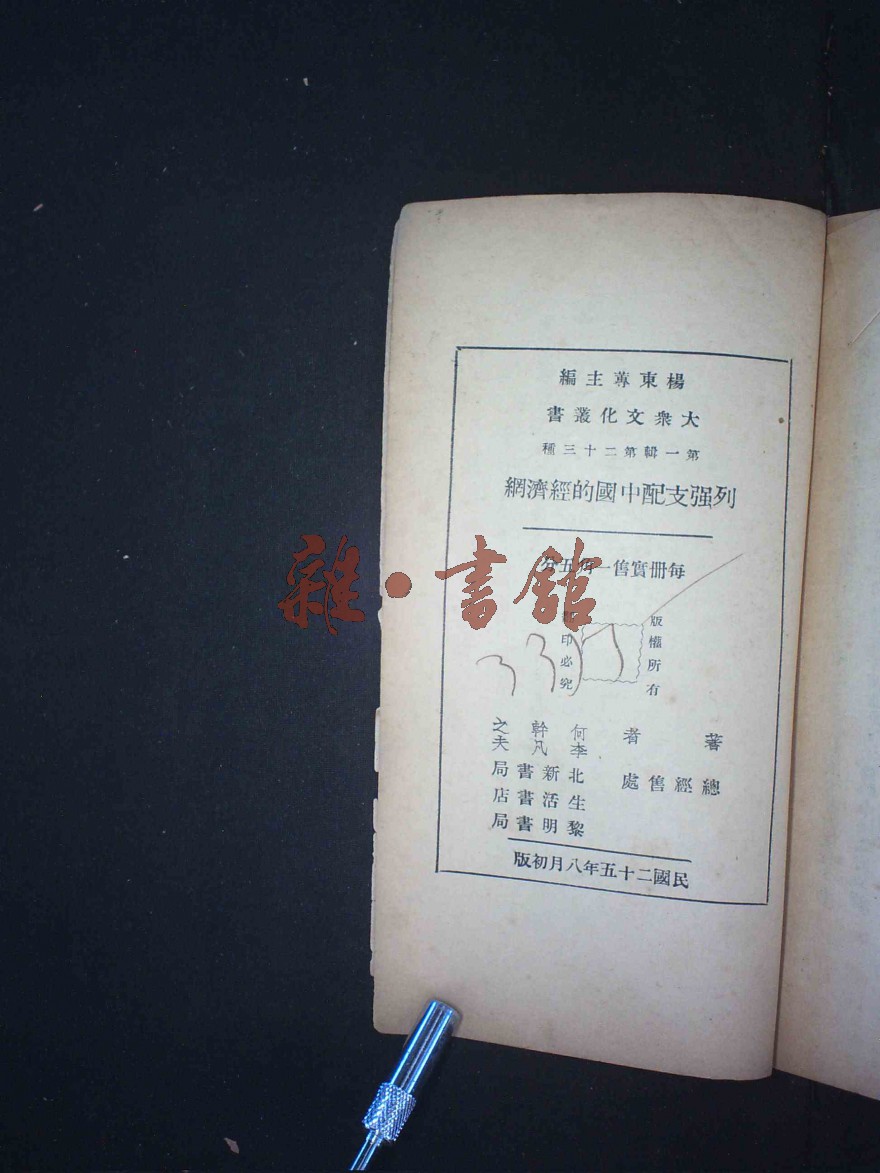 楊東蓴主編
大衆文化叢書
第一輯第二十三種
列强支配中國的經濟網
每冊實售一角五分
版權所有
印必究
著者
何幹之
李凡夫
總經售處
北新書局
生活書店
黎明書局
民國二十五年八月初版
雜·書館